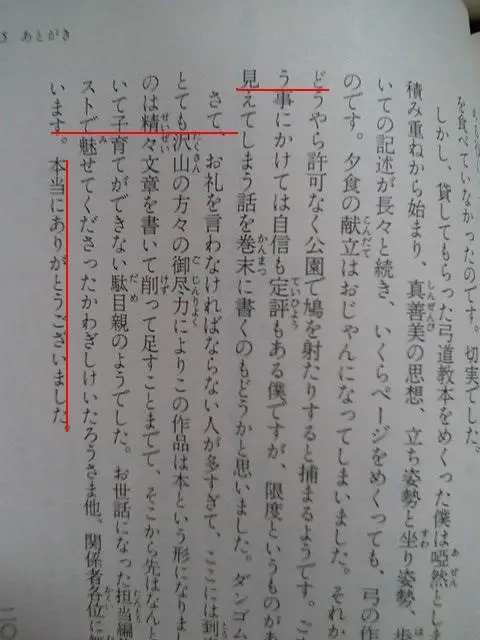 5 あとがき
を食べていなかったのです。切実でした。
しかし、貸してもらった弓道教本をめくった僕は啞然とし
積み重ねから始まり、真善美の思想、立ち姿勢と坐り姿勢、歩
いての記述が長々と続き、いくらページをめくっても、弓の作
のです。夕食の献立はおじゃんになってしまいました。それか
どうやら許可なく公園で鳩を射たりすると捕まるようです。こ
う事にかけては自信も定評もある僕ですが、限度というものがあ
見えてしまう話を巻末に書くのもどうかと思いました。ダンゴム
さて、お礼を言わなければならない人が多すぎて、ここには到
とても沢山の方々の御尽力によりこの作品は本という形になりま
のは精々文章を書いて削って足すことまでで、そこから先はなんと
いて子育てができない駄目親のようでした。お世話になった担当編
ストで魅せてくださったかわぎしけいたろうさま他、関係者各位に
います。本当にありがとうございました
二〇